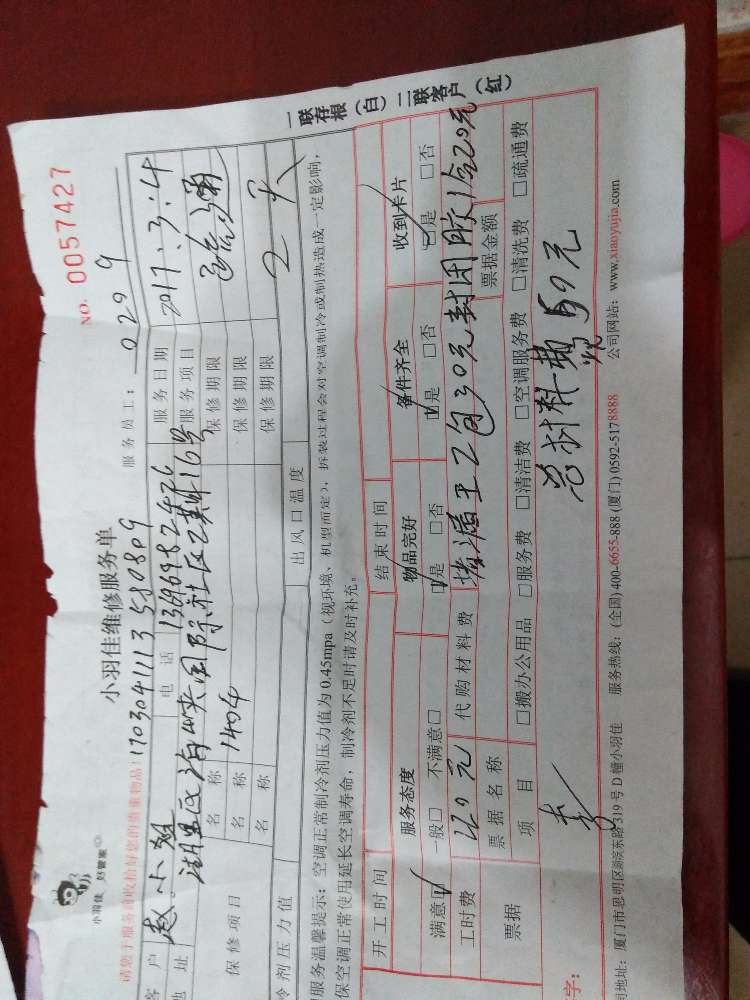 小羽佳 好管家
小羽佳维修服务单
NO. 0057427
请您于服务前收拾好您的贵重物品！ 1703041113580809
服务员工： 0209
客 户 赵小姐 电 话 13696982476 服务日期 2017.3.4
地 址 湖里区海峡国际社区2期16号 服务项目
1404
保修项目
名 称 保修期限
名 称 保修期限 2天
名 称 保修期限
冷剂压力值 出风口温度
服务温馨提示：空调正常制冷剂压力值为0.45mpa（视环境、机型而定），拆装过程会对空调制冷或制热造成一定影响，
保空调正常使用延长空调寿命，制冷剂不足时请及时补充。
开工时间 结束时间
服务态度 物品完好 备件齐全 收到卡片
满意☑ 一般□ 不满意□ ☑是 □否 ☑是 □否 ☑是 □否
工时费 120元 代购材料费 堵漏王2包30元封固胶1仓20元
票据 票据名称 票据金额
项 目 □搬办公用品 □服务费 □清洁费 □空调服务费 □清洗费 □疏通费
总材料费50元
字：
司地址：厦门市思明区湖滨东路319号D幢小羽佳 服务热线：(全国) 400-6655-888 (厦门) 0592-5178888 公司网站：www.xiaoyujia.com
一联存根（白） 二联客户（红）